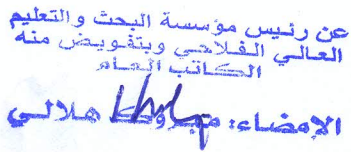 عن رئيس مؤسسة البحث والتعليم
العالي الفلاحي وبتفويض منه
الكاتب العام
الإمضاء: هلالي